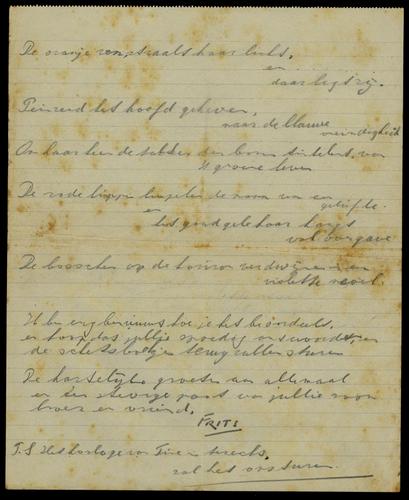 De oranje zon straalt haar licht,
en
daar ligt zij.
Peinzend het hoofd geheven,
naar de blauwe
oneindigheid
Om haar heen de takken der boom van
't groene leven
De rode lippen de naam van een
geliefde.
en
het goudgele haar hangt
vol overgave
De bosschen op de horizon verdwijnen in een
violette nevel.
'k ben erg benieuwd hoe je het beoordeelt,
en hoop dat jullie spoedig antwoorden en
de schetsboekjes terug zullen sturen
De hartelijke groeten aan allemaal
en een stevige poot van jullie
broer en vriend.
FRITS
P.S Het horloge van is
zal het opsturen.